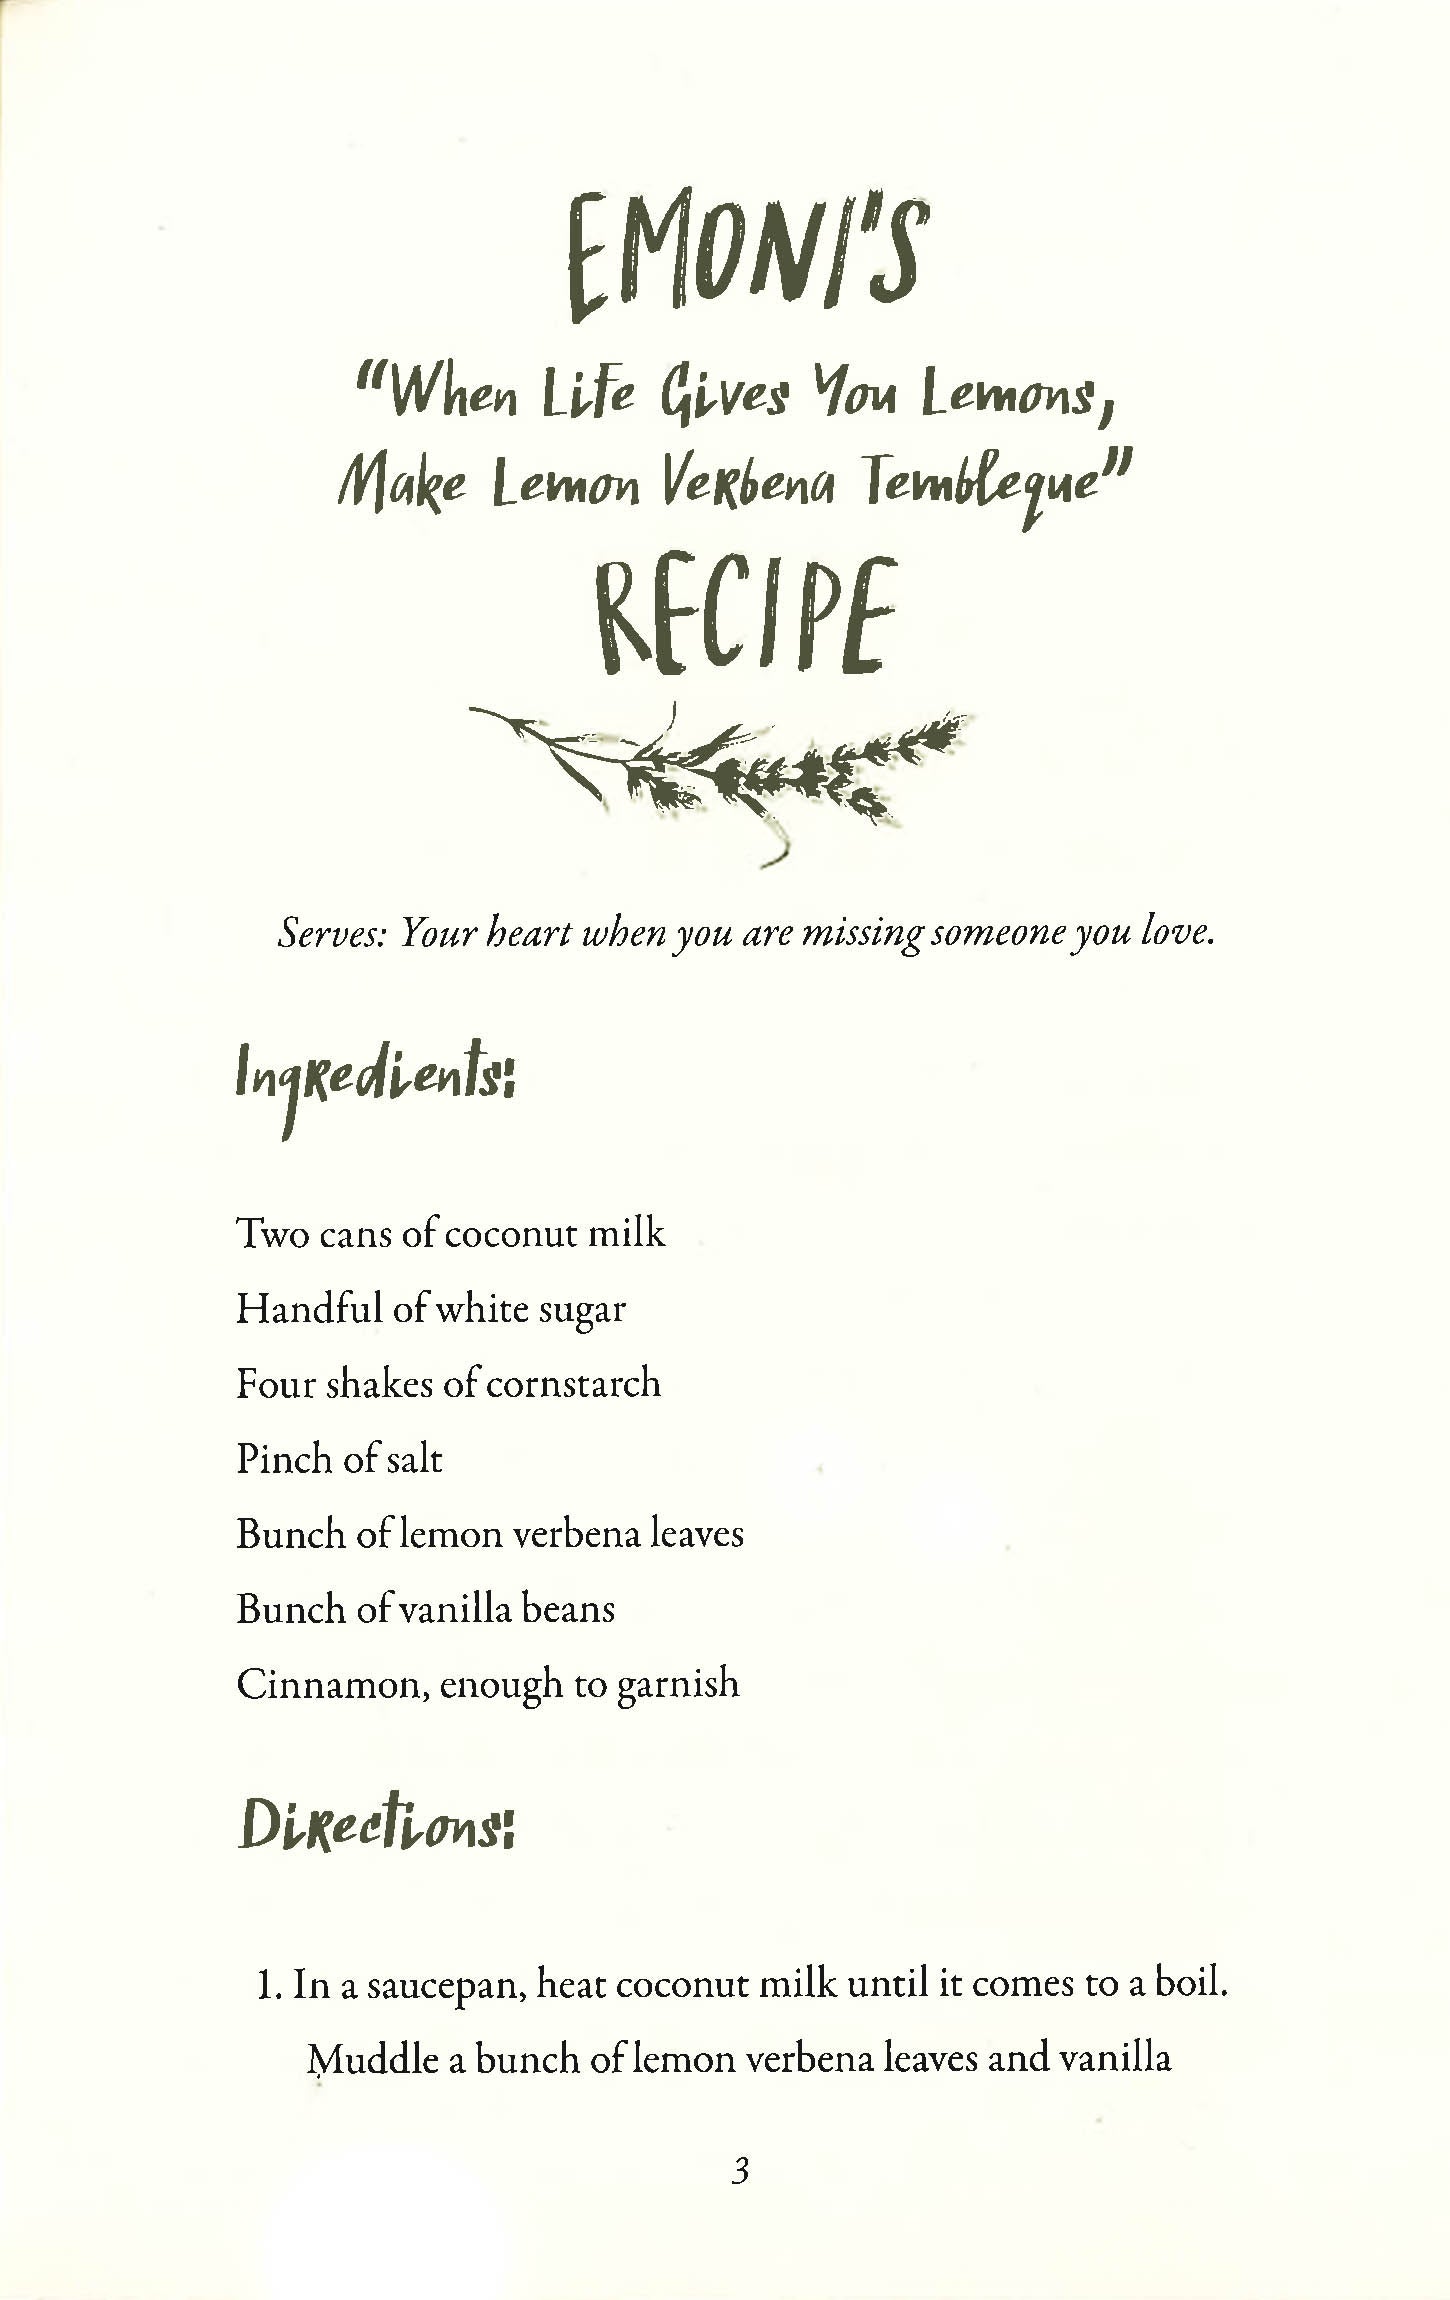 EMONI'S
"When Life Gives You Lemons,
Make Lemon Verbena Tembleque"
RECIPE
Serves: Your heart when you are missing someone you love.
Ingredients:
Two cans of coconut milk
Handful of white sugar
Four shakes of cornstarch
Pinch of salt
Bunch of lemon verbena leaves
Bunch of vanilla beans
Cinnamon, enough to garnish
Directions:
1. In a saucepan, heat coconut milk until it comes to a boil.
Muddle a bunch of lemon verbena leaves and vanilla
3